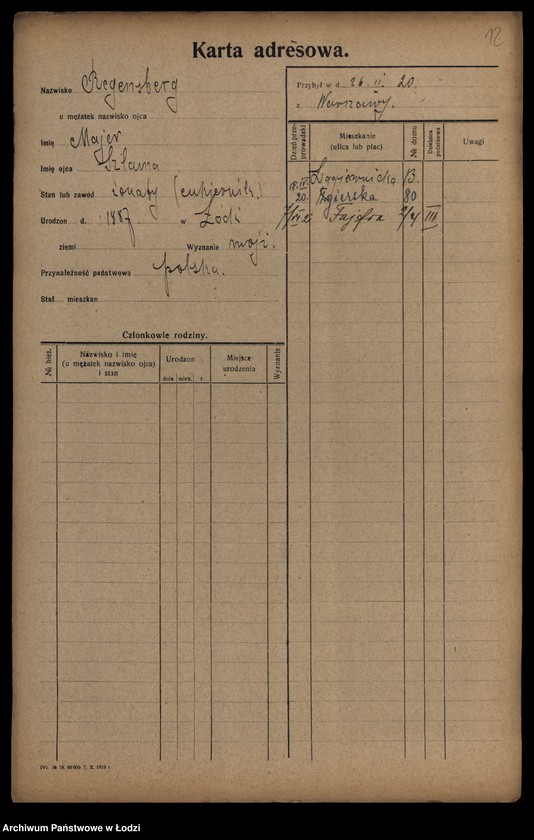 12
Karta adresowa.
Nazwisko Regensberg
u mężatek nazwisko ojca
Imię Majer
Imię ojca Szlama
Stan lub zawód żonaty (cukiernik)
Urodzon d. 1887 w Łodzi
ziemi Wyznanie mojż.
Przynależność państwowa polska.
Stał. mieszkan.
Członkowie rodziny.
№ bież. Nazwisko i imię (u mężatek nazwisko ojca) i stan Urodzon dnia mies. r. Miejsce urodzenia Wyznanie
Przybył w d. 26. II. 20.
z Warszawy.
Dzień przeprowadzki Mieszkanie (ulica lub plac) № domu Dzielnica państwowa Uwagi
13.
20. Zgierska 80
Fajfra 2/4 III
IVc. № 18. 60000 7. X. 1919 r.
Archiwum Państwowe w Łodzi